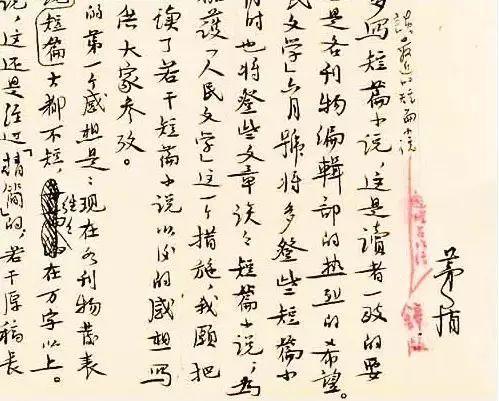 茅盾
談最近的短篇小说
多写短篇小说，这是讀者一致的要
是各刊物编輯部的热烈的希望。
民文学」六月號将多登些短篇小
时也将登些文章谈々短篇小说，為
护「人民文学」这一个措施，我願把
读了若干短篇小说以后的感想写
供大家参攷。
的第一个感想是：现在各刊物發表
短篇大都不短，往々在万字以上。
说，这还是经过「精简」的，若干原稿長